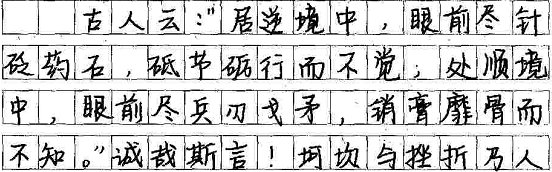 古人云:"居逆境中,眼前尽针
砭药石,砥节砺行而不觉;处顺境
中,眼前尽兵刃戈矛,销膏靡骨而
不知。"诚哉斯言!坷坎与挫折乃人